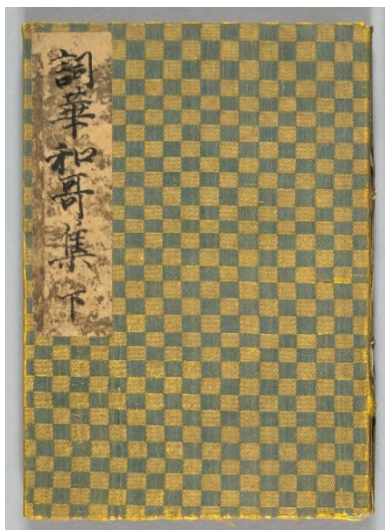 詞華和哥集 下